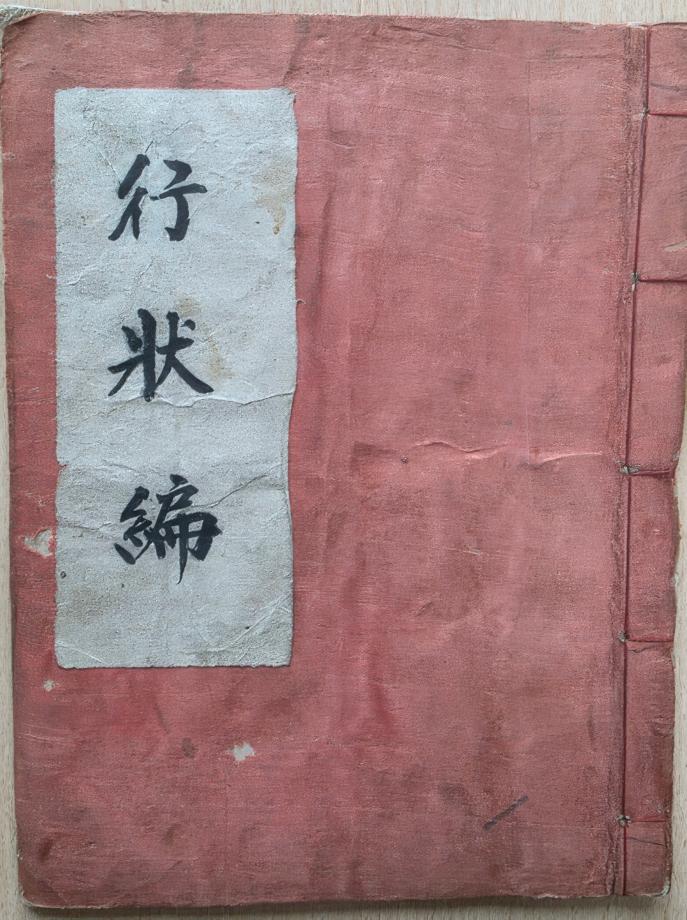 行狀編